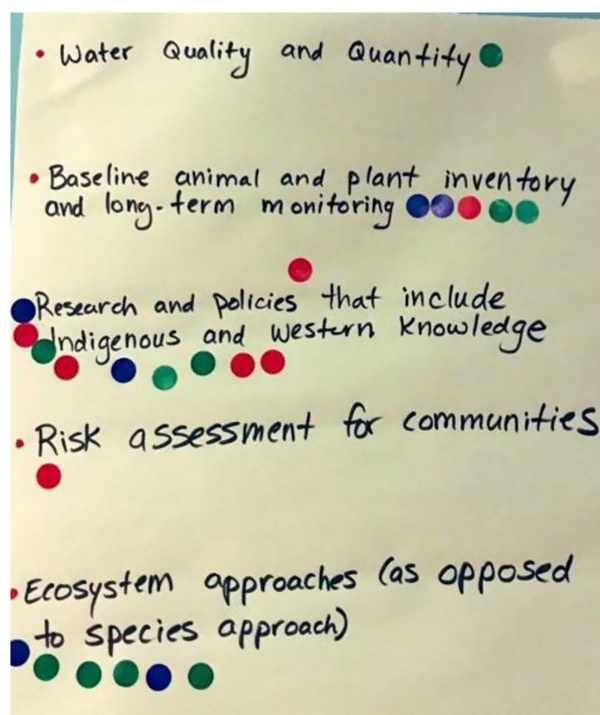 • Water Quality and Quantity
• Baseline animal and plant inventory
and long-term monitoring
Research and policies that include
Indigenous and western knowledge
• Risk assessment for communities
• Ecosystem approaches (as opposed
to species approach)